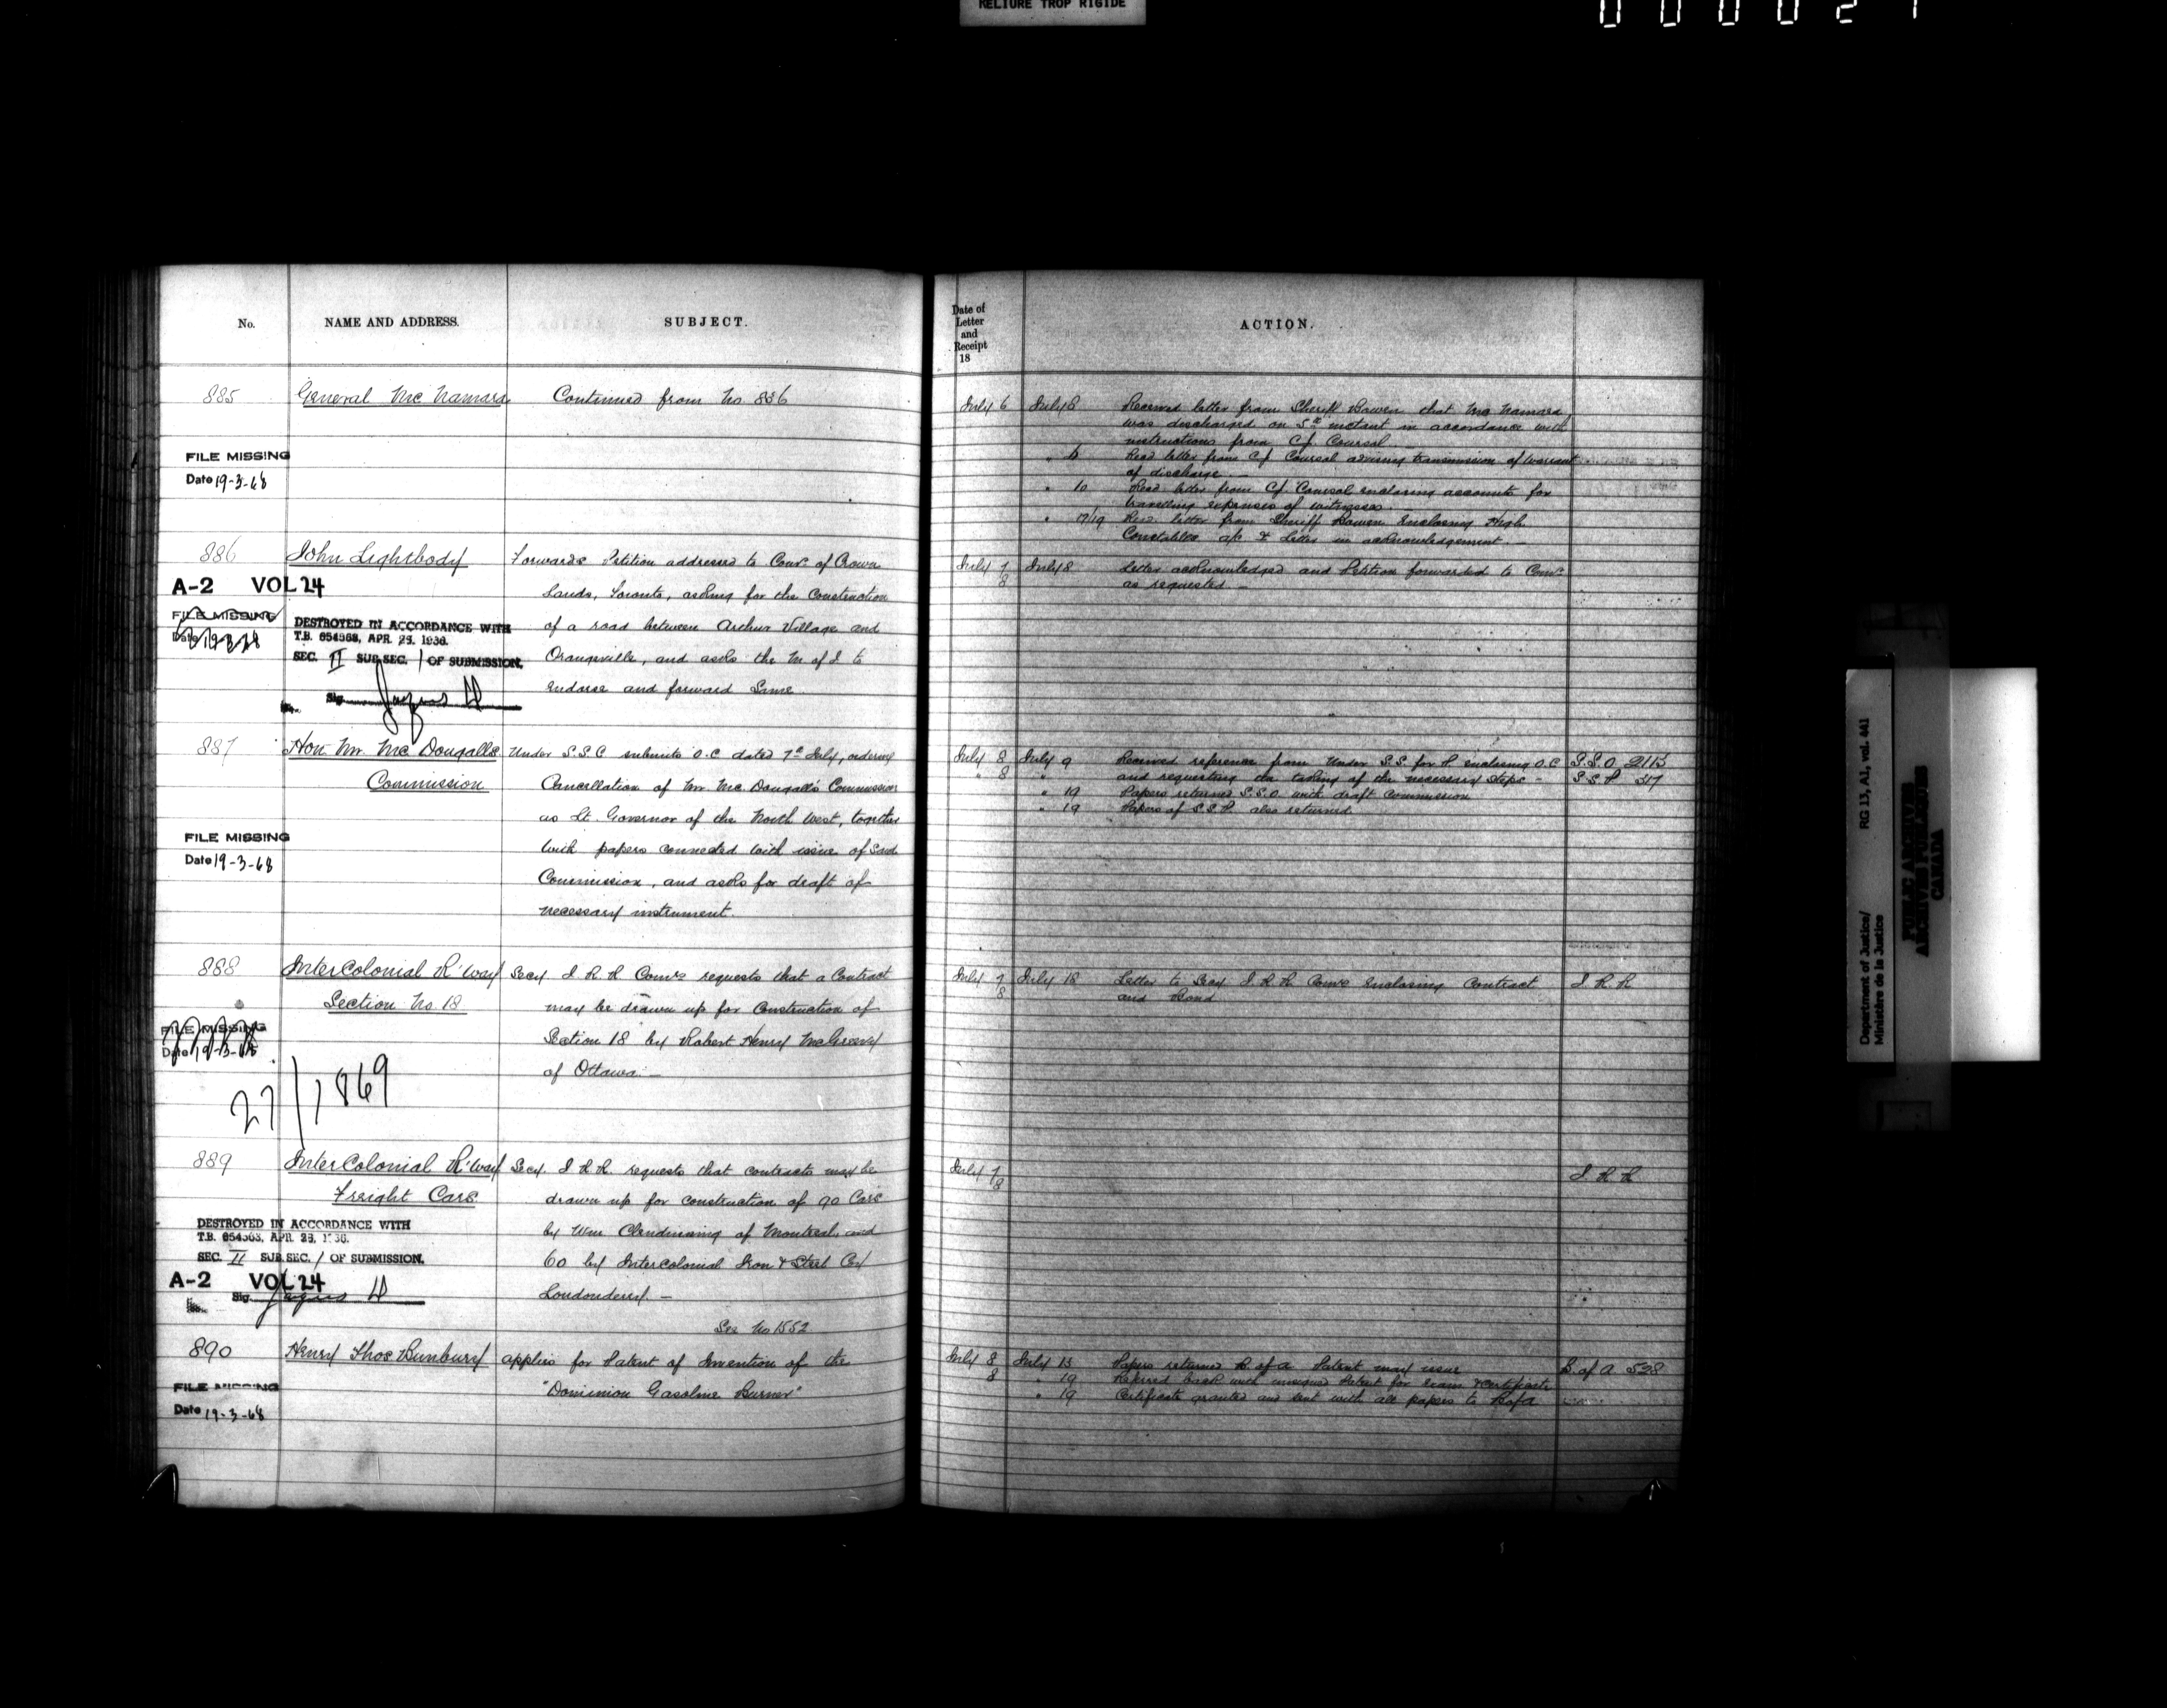 RELIURE TROP RIGIDE
No.
NAME AND ADDRESS.
SUBJECT.
885
General McNamara
Continued from No 836
FILE MISSING
Date 19-3-68
886
John Lightbody
Forwards Petition addressed to Comr of Crown
Lands, Toronto, asking for the Construction
of a road between Arthur Village and
Orangeville, and asks the M of J to
endorse and forward Same
A-2 VOL 24
FILE MISSING
Date 19-3-68
DESTROYED IN ACCORDANCE WITH
T.B. 654563, APR. 25, 1936.
SEC. II SUB SEC. 1 OF SUBMISSION.
Sig.
887
Hon Mr McDougalls
Commission
Under S.S.C submits O.C dated 7th July, ordering
Cancellation of Mr McDougall's Commission
as Lt. Governor of the North West, together
with papers connected with issue of said
Commission, and asks for draft of
necessary instrument.
FILE MISSING
Date 19-3-68
888
InterColonial R'way
Section No. 18
Secy I R R Comrs requests that a Contract
may be drawn up for Construction of
Section 18 by Robert Henry McGreevy
of Ottawa. —
FILE MISSING
Date 19-3-68
27/1869
889
InterColonial R'way
Freight Cars
Secy. I R R. requests that contracts may be
drawn up for construction of 90 Cars
by Wm Clendinning of Montreal, and
60 by Intercolonial Iron & Steel Coy
Londonderry. —
See No 1552
DESTROYED IN ACCORDANCE WITH
T.B. 654563, APR. 25, 1936.
SEC. II SUB SEC. 1 OF SUBMISSION.
A-2 VOL 24
Sig.
890
Henry Thos Bunbury
applies for Patent of Invention of the
"Dominion Gasoline Burner"
FILE MISSING
Date 19-3-68
Date of
Letter
and
Receipt
18
ACTION.
July 6 July 8 Received letter from Sheriff Bowen that McNamara
was discharged on 5th instant in accordance with
instructions from C J Coursol
" Recd letter from C J Coursol advising transmission of Warrant
of discharge
" 10 Recd. letter from C J Coursol enclosing accounts for
travelling expenses of witnesses.
" 17/19 Recd. letter from Sheriff Bowen enclosing High
Constables a/c & Letter in acknowledgement. —
July 7 July 8 Letter acknowledged and Petition forwarded to Comr
8 as requested —
July 8 July 9 Received reference from Under S.S. for P enclosing O.C S.S.O. 2113
" 8 " and requesting the taking of the necessary steps — S.S.P 317
" 19 Papers returned S.S.O. with draft Commission
" 19 Papers of S.S.P. also returned
July 7 July 18 Letter to Secy I R R Comrs enclosing Contract I R R
8 and Bond
July 7 I R R
8
July 8 July 13 Papers returned B. of A. Patent may issue B. of A 528
8 " 19 Referred back with unsigned Patent for Exam & Certificate
" 19 Certificate granted and sent with all papers to B of A
Department of Justice/
Ministère de la Justice
RG 13, A1, vol. 441
PUBLIC ARCHIVES
ARCHIVES PUBLIQUES
CANADA